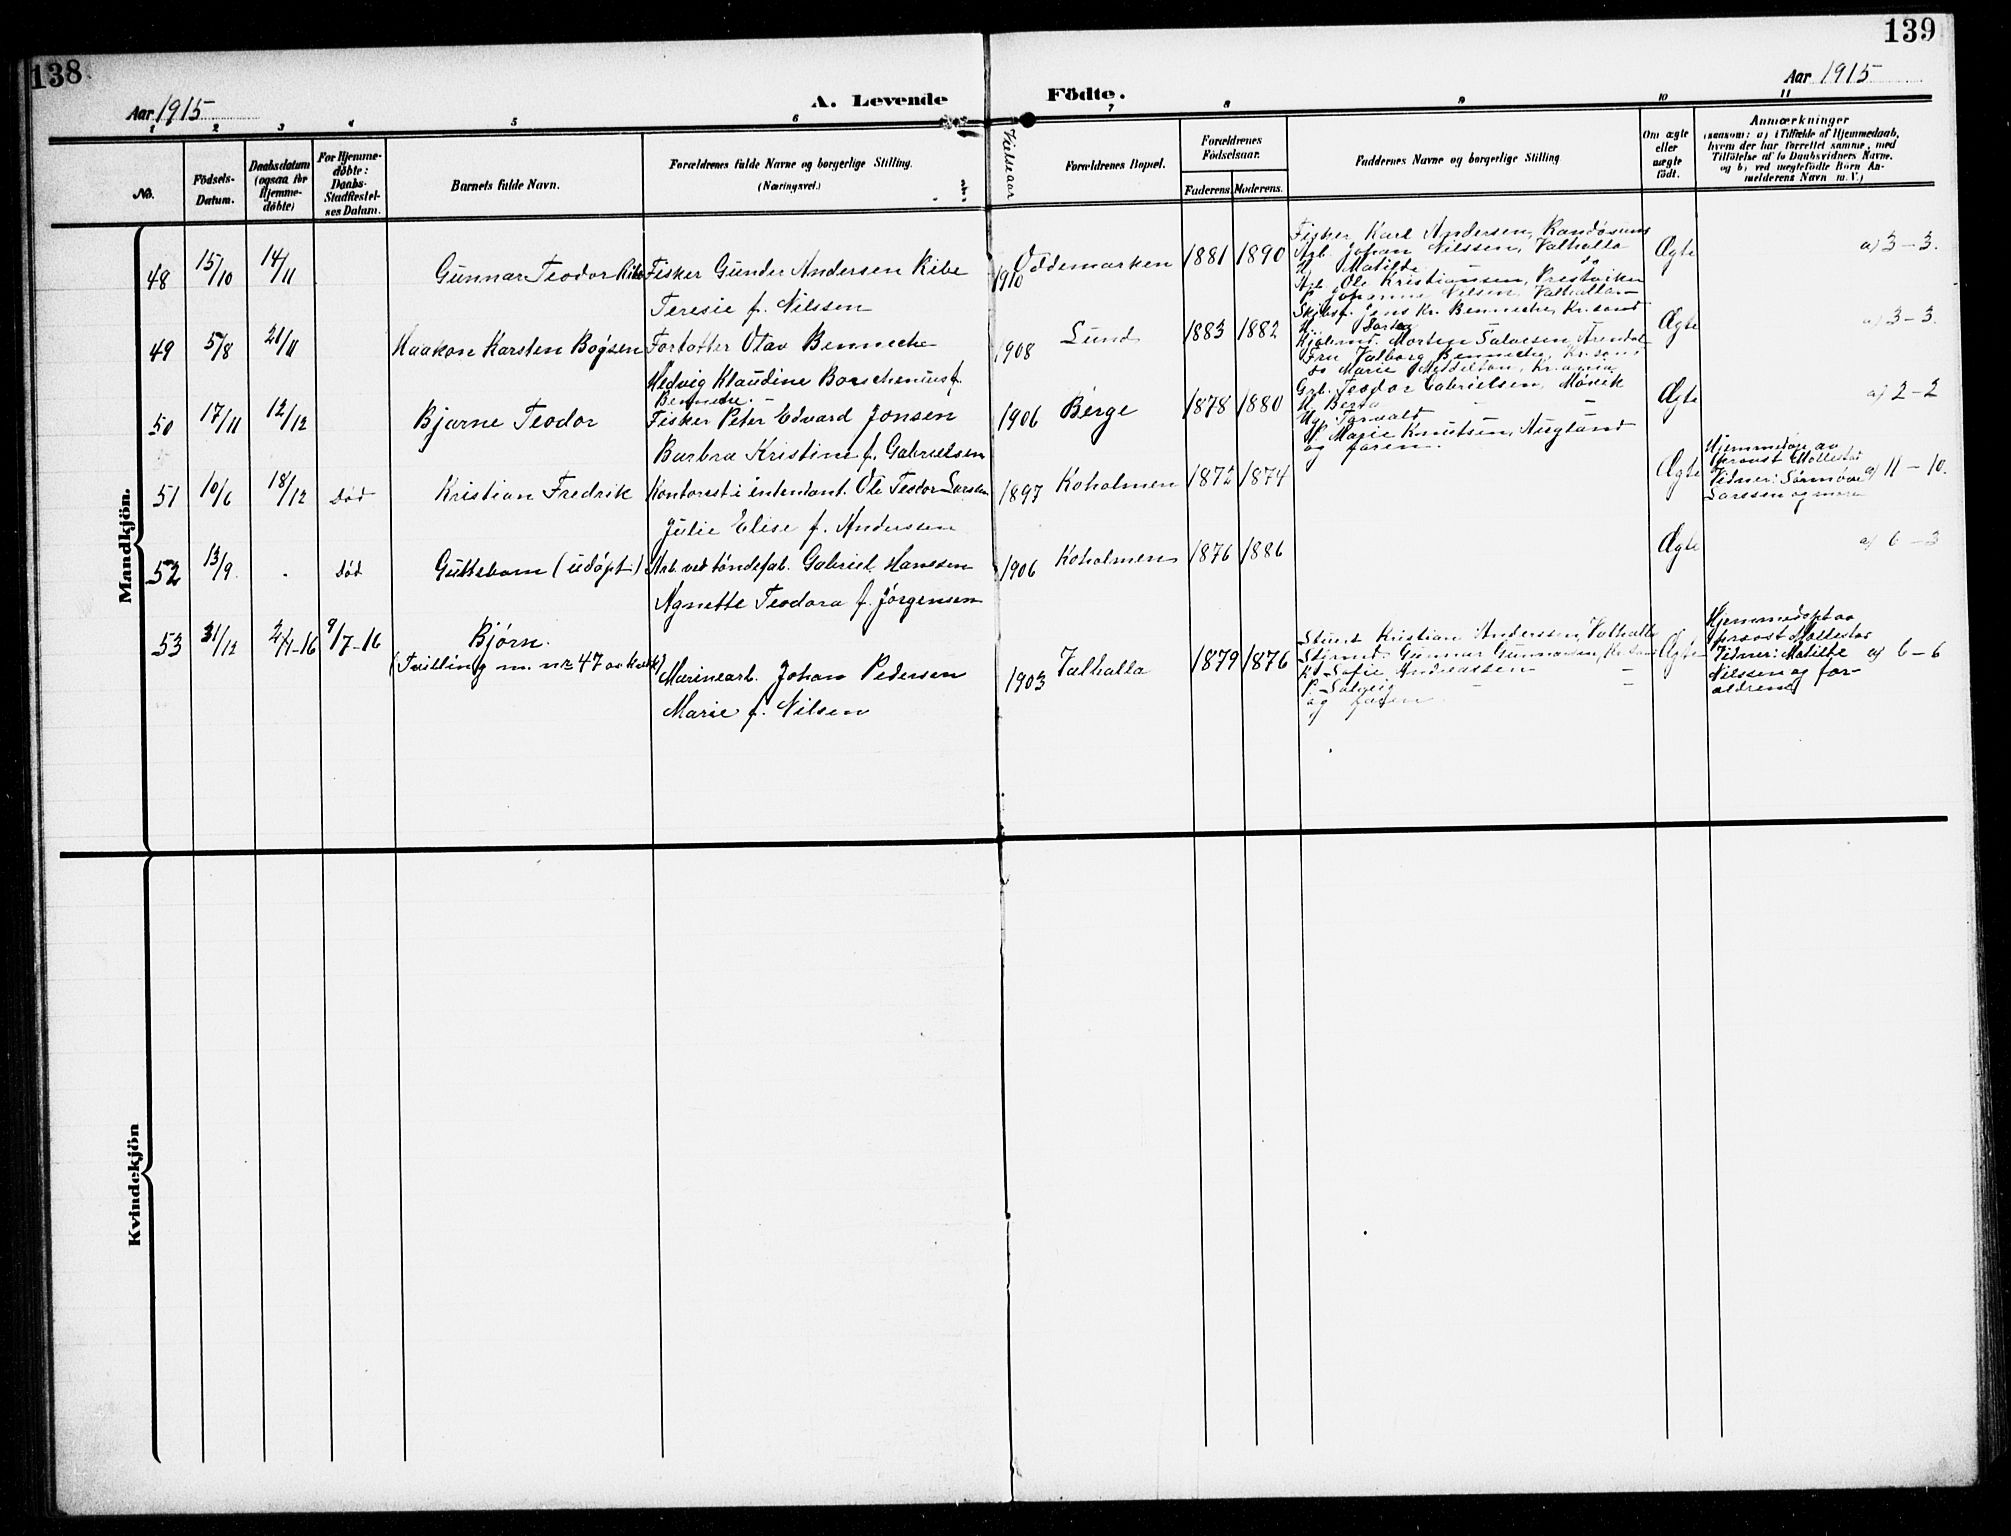 138
139
Aar 1915
A. Levende
Födte.
Aar 1915
1 2 3 4 5 6 7 8 9 10 11
No.
Födsels-
Datum.
Daabsdatum
(ogsaa for
Hjemme-
döbte)
For Hjemme-
döbte:
Daabs-
Stadfæstel-
ses Datum.
Barnets fulde Navn.
Forældrenes fulde Navne og borgerlige Stilling.
(Næringsvei.)
Vielsesaar
Forældrenes Bopæl.
Forældrenes
Födselsaar.
Faderens.
Moderens.
Faddernes Navne og borgerlige Stilling
Om ægte
eller
uægte
födt.
Anmærkninger
(saasom: a) i Tilfælde af Hjemmedaab,
hvem der har forrettet samme, med
Tilföielse af to Daabsvidners Navne,
og b) ved uægtefödte Börn An-
melderens Navn m. V.)
Mandkjön.
48 15/10 14/11 Gunnar Teodor Ribe Fisker Gunder Andersen Ribe
Teresie f. Nilssen
1910 Oddemarken 1881 1890
Fisker Karl Andersen, Randøsund
Arb. Johan Nilssen, Valhalla
H. Matilde do
Arb. Ole Kristiansen, Prestviken
P. Johanne Nilsen Valhalla
Ægte a) 3-3.
49 5/8 21/11 Haakon Karsten Bogsen Forfatter Olav Benneche
Hedvig Klaudine Borchenius f.
Benneche.
1908 Lund 1883 1882
Skibsf. Jens Kr. Benneche, Kr.sand
H. Dortea
Kjøbmd. Morten Salvesen Arendal
Fru Valborg Benneche, Kr.sand
do Marie Middelton, Kr.ania
Ægte a) 3-3.
50 17/11 12/12 Bjarne Teodor Fisker Peter Edvard Jonsen
Barbra Kristine f. Gabrielsen
1906 Berge 1878 1880
Grb. Teodor Gabrielsen, Møvik
H. Berta - -
Ug. Torvald
P. Marie Knutsen, Augland
og faren.
Ægte a) 2-2
51 10/6 18/12 Død Kristian Fredrik Kontorist i intendant. Ole Teodor Larsen
Julie Elise f. Andersen
1897 Koholmen 1872 1874
Ægte
Hjemmedøp av
provst Møllestad
Vidner: Jormor
Larssen og mora
a) 11-10.
52 13/9. . Død Guttebarn (udøpt) Arb. ved tøndefab. Gabriel Hanssen
Agnette Teodora f. Jørgensen
1906 Koholmen 1876 1886 Ægte a) 6-3
53 31/12 2/1-16 9/7-16 Bjørn.
(Tvilling m. nr 47 av kvk) Marinearb. Johan Pedersen
Marie f. Nilsen
1903 Valhalla 1879 1876
Stuert Kristian Andersen, Valhalla
Styrmd. Gunnar Gunnarsen, Kr.sand
K. Sofie Andreassen -
P. Solveig - -
og faren.
Ægte
Hjemmedøpt av
provst Møllestad
Vidner: Matilde
Nilssen og for-
ældrene
a) 6-6
Kvindekjön